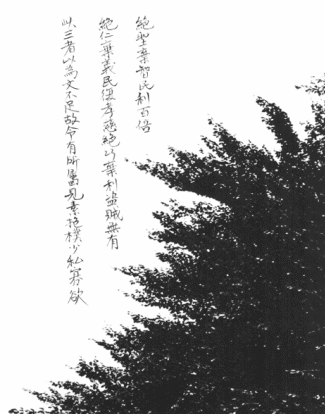 絕聖棄智民利百倍
絕仁棄義民復孝慈絕巧棄利盜賊無有
此三者以為文不足故令有所屬見素抱樸少私寡欲